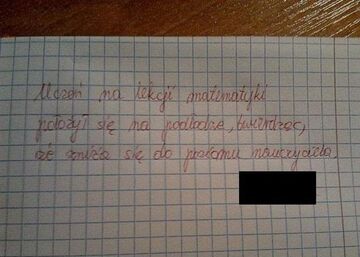 Uczeń na lekcji matematyki
położył się na podłodze, twierdząc,
że zniża się do poziomu nauczyciela.